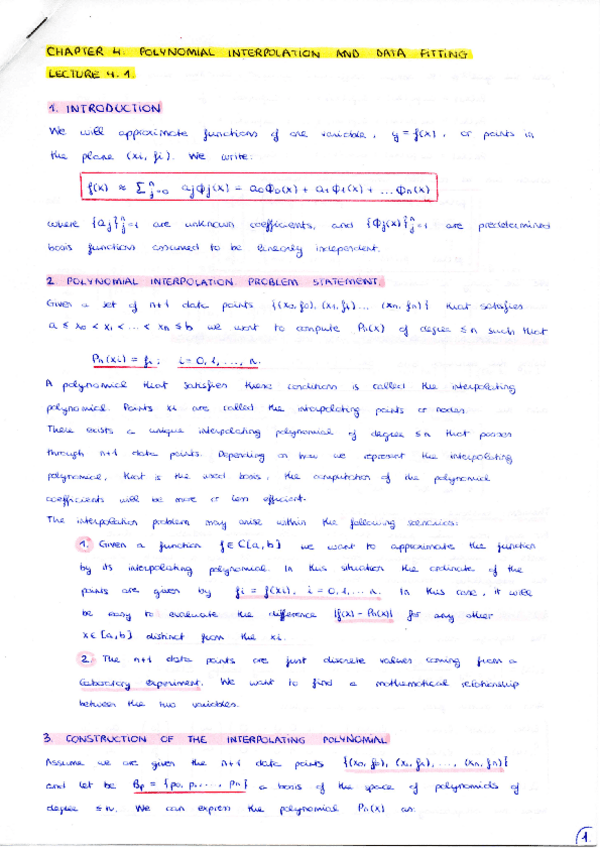 CHAPTER 4. POLYNOMIAL INTERPOLATION AND DATA FITTING
LECTURE 4.1.
1. INTRODUCTION
We will approximate functions of one variable, y = f(x), or points in
the plane (xi, fi). We write:
f(x) ≈ ∑ⁿj=0 ajϕj(x) = a0ϕ0(x) + a1ϕ1(x) + ... ϕn(x)
where {aj}ⁿj=1 are unknown coefficients, and {ϕj(x)}ⁿj=1 are predetermined
basis functions assumed to be linearly independent.
2. POLYNOMIAL INTERPOLATION PROBLEM STATEMENT.
Given a set of n+1 data points {(x0, f0), (x1, f1) ... (xn, fn)} that satisfies
a ≤ x0 < x1 < ... < xn ≤ b we want to compute Pn(x) of degree ≤ n such that
Pn(xi) = fi; i = 0, 1, ..., n.
A polynomial that satisfies these conditions is called the interpolating
polynomial. Points xi are called the interpolating points or nodes.
There exists a unique interpolating polynomial of degree ≤ n that passes
through n+1 data points. Depending on how we represent the interpolating
polynomial, that is the used basis, the computation of the polynomial
coefficients will be more or less efficient.
The interpolation problem may arise within the following scenarios:
1. Given a function f ∈ C[a, b] we want to approximate the function
by its interpolating polynomial. In this situation the ordinate of the
points are given by fi = f(xi), i = 0, 1, ... n. In this case, it will
be easy to evaluate the difference |f(x) - Pn(x)| for any other
x ∈ [a, b] distinct from the xi.
2. The n+1 data points are just discrete values coming from a
laboratory experiment. We want to find a mathematical relationship
between the two variables.
3. CONSTRUCTION OF THE INTERPOLATING POLYNOMIAL
Assume we are given the n+1 data points {(x0, f0), (x1, f1), ..., (xn, fn)}
and let be Bp = {p0, p1, ..., pn} a basis of the space of polynomials of
degree ≤ n. We can express the polynomial Pn(x) as:
1.